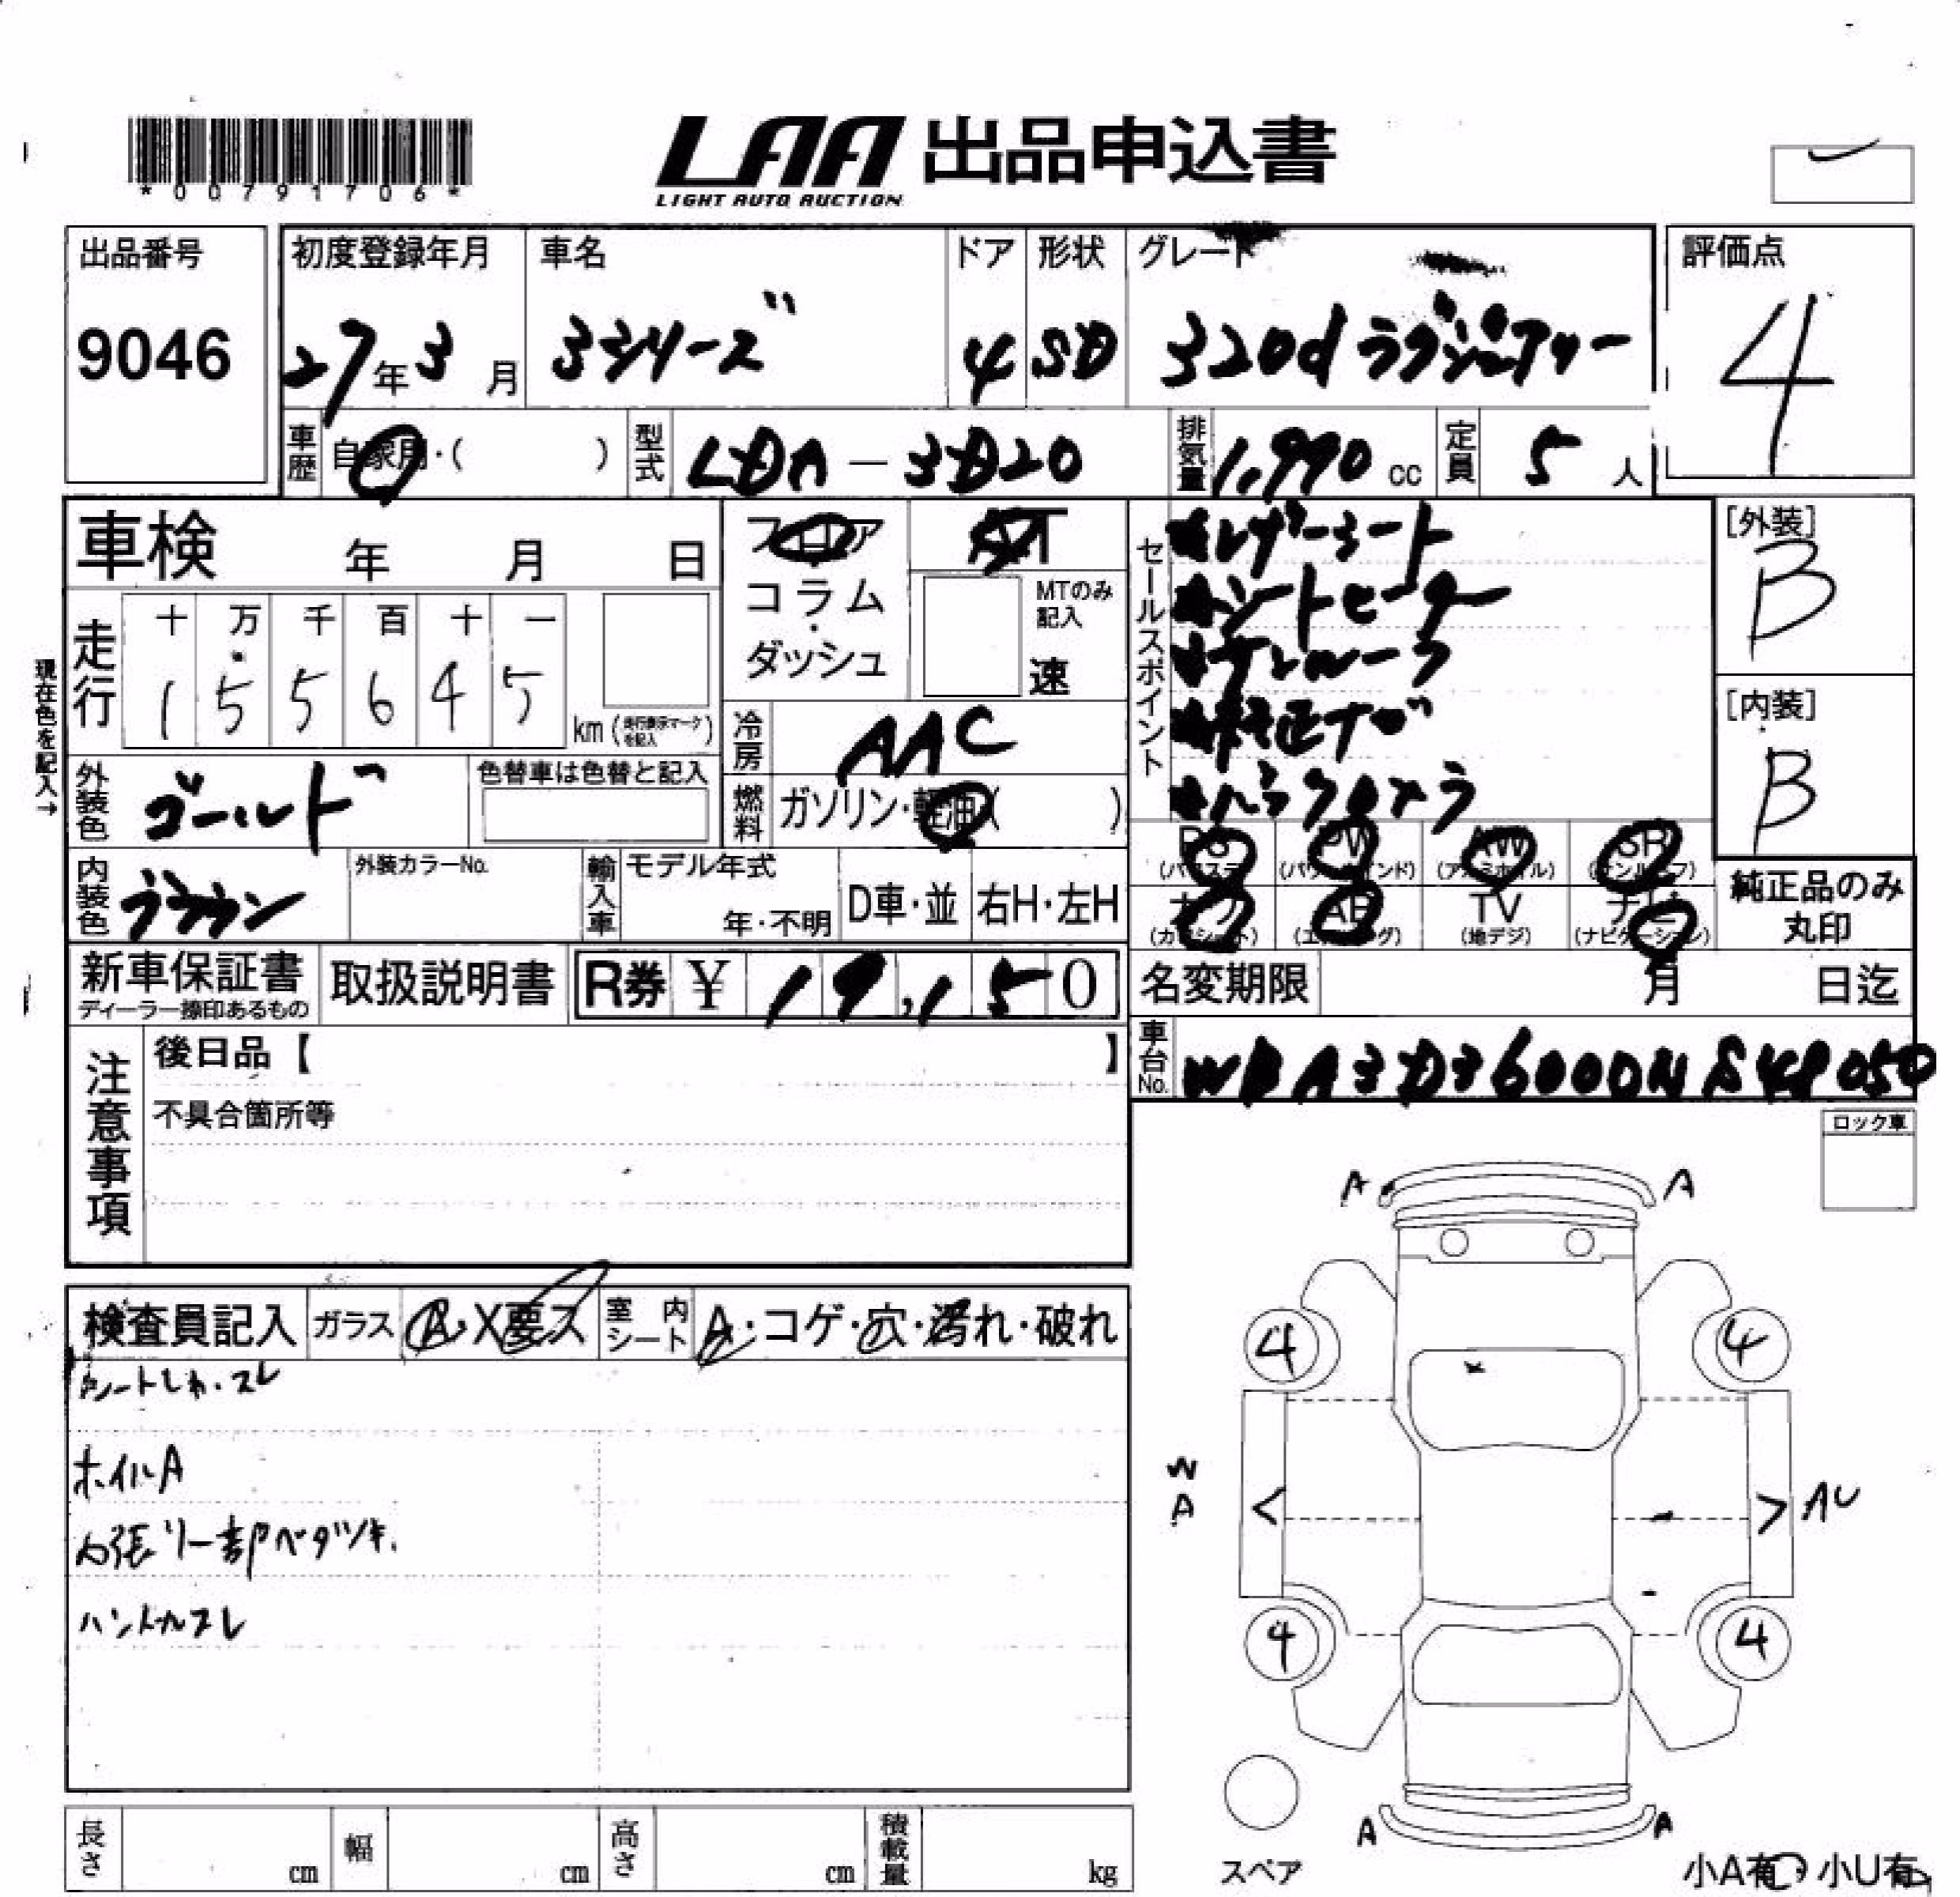 *00791706*
LAA 出品申込書
LIGHT AUTO AUCTION
出品番号 初度登録年月 車名 ドア 形状 グレード 評価点
9046 27年3月 3シリーズ 4 SD 320d ラグジュアリー 4
車歴 自家用・( ) 型式 LDA-3D20 排気量 1,990 cc 定員 5 人
車検 年 月 日
フロア AT
コラム・ダッシュ
MTのみ記入 速
セールスポイント
レザーシート
シートヒーター
サンルーフ
純正ナビ
バックカメラ
[外装] B
[内装] B
走行 十 万 千 百 十 一
1 5 5 6 4 5
km (走行表示マークを記入)
現在色を記入→
冷房 AAC
外装色 ゴールド 色替車は色替と記入
燃料 ガソリン・軽油( )
PS PW AW SR
(パワステ) (パワーウインド) (アルミホイル) (サンルーフ)
内装色 ブラウン 外装カラーNo. 輸入車 モデル年式 年・不明 D車・並 右H・左H
カワ AB TV ナビ
(カワシート) (エアバッグ) (地デジ) (ナビゲーション)
純正品のみ丸印
新車保証書 取扱説明書 R券 ¥ 19,150
ディーラー捺印あるもの
名変期限 月 日迄
注意事項 後日品【 】
不具合箇所等
車台No.
ロック車
A A
検査員記入 ガラス A・X要ス 室内シート A・コゲ・穴・汚れ・破れ
シートしわ・スレ
ホイルA
内張リ一部ベタツキ.
ハンドルスレ
4 4
W
A
< > AU
4 4
A A
スペア
小A有・小U有
長さ cm 幅 cm 高さ cm 積載量 kg